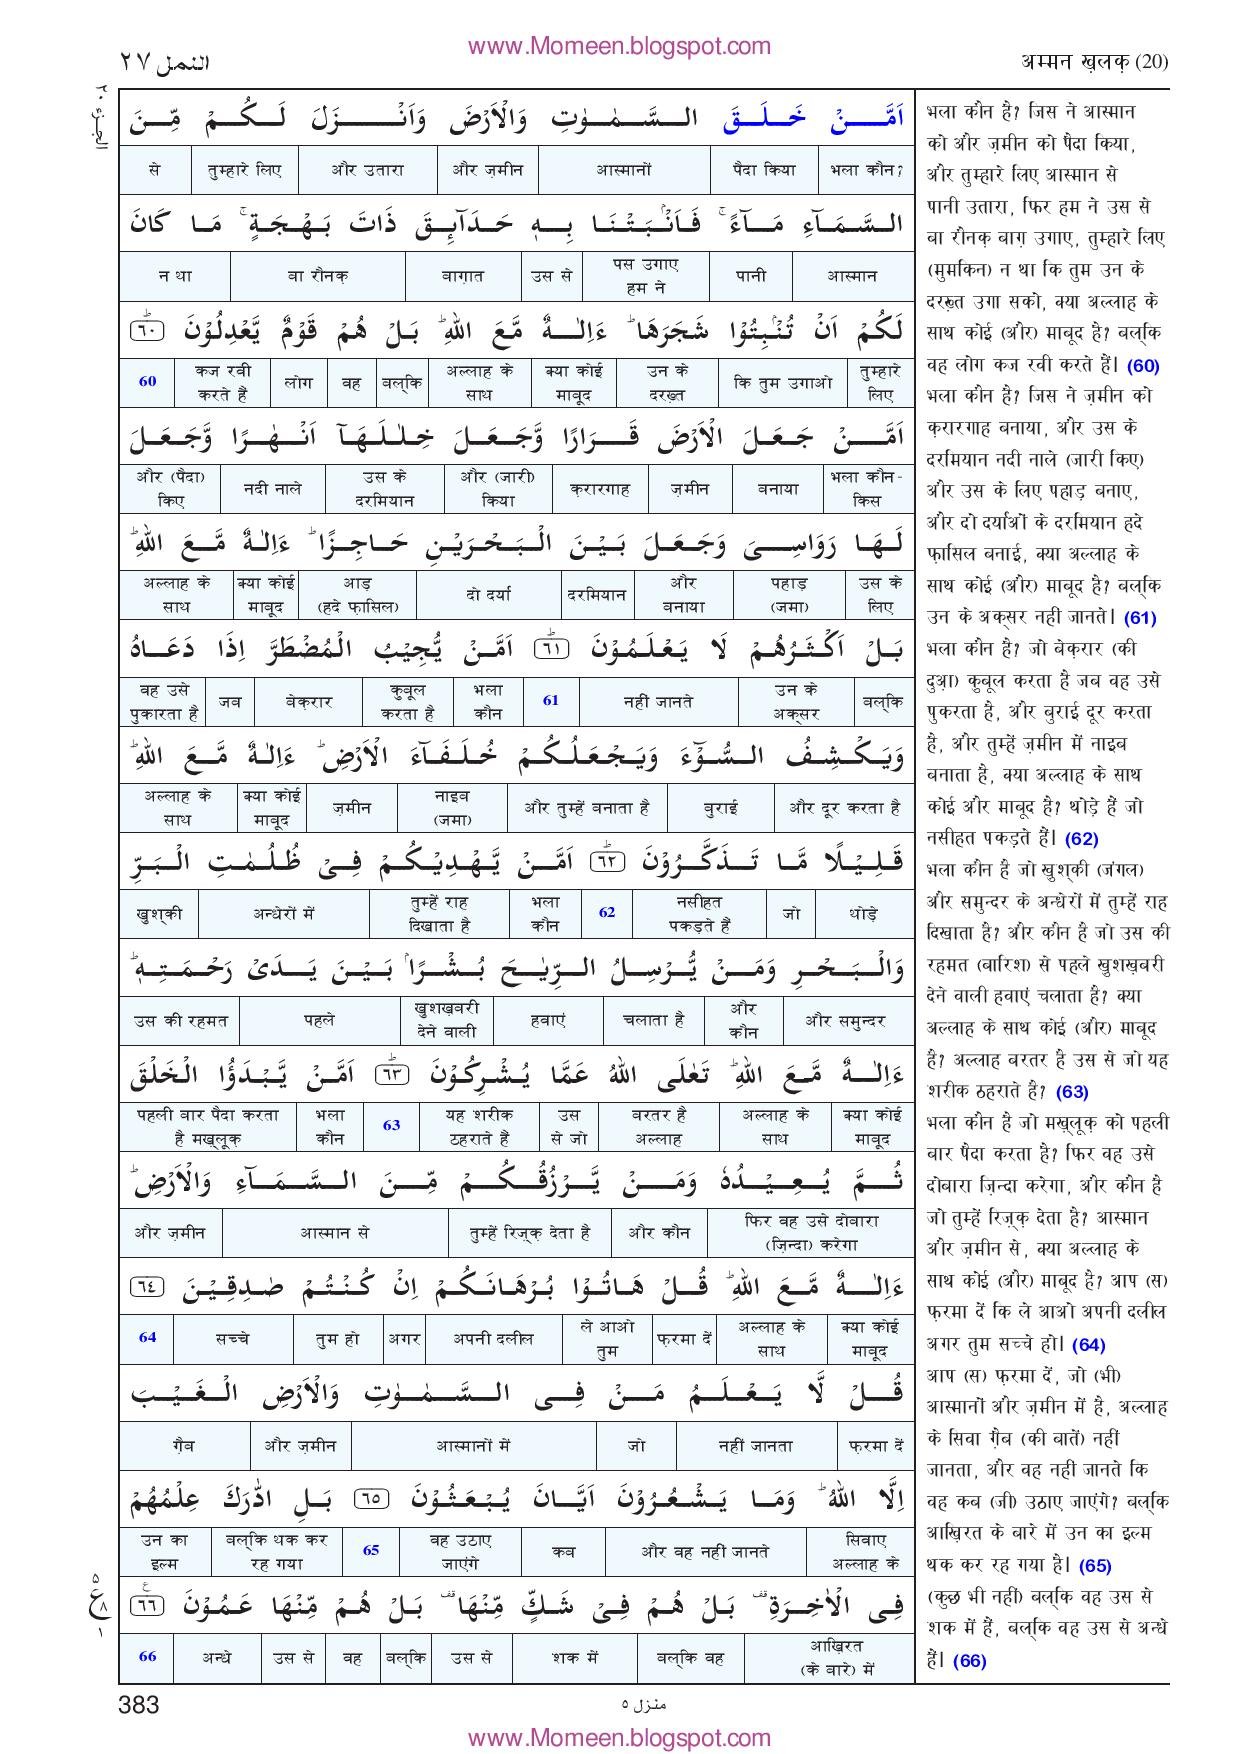 www.Momeen.blogspot.com
النمل ٢٧
अम्मन ख़लक़ (20)
الجزء ٢٠
اَمَّنْ خَلَقَ السَّمٰوٰتِ وَالْاَرْضَ وَاَنْزَلَ لَكُمْ مِّنَ
भला कौन? पैदा किया आस्मानों और ज़मीन और उतारा तुम्हारे लिए से
السَّمَآءِ مَآءً ۚ فَاَنْۢبَتْنَا بِهٖ حَدَآئِقَ ذَاتَ بَهْجَةٍ ۚ مَا كَانَ
आस्मान पानी पस उगाए हम ने उस से बाग़ात बा रौनक़ न था
لَكُمْ اَنْ تُنْۢبِتُوْا شَجَرَهَا ؕ ءَاِلٰهٌ مَّعَ اللّٰهِ ؕ بَلْ هُمْ قَوْمٌ يَّعْدِلُوْنَ ؕ ٦٠
तुम्हारे लिए कि तुम उगाओ उन के दरख़्त क्या कोई माबूद अल्लाह के साथ बल्कि वह लोग कज रवी करते हैं 60
اَمَّنْ جَعَلَ الْاَرْضَ قَرَارًا وَّجَعَلَ خِلٰلَهَآ اَنْهٰرًا وَّجَعَلَ
भला कौन-किस बनाया ज़मीन क़रारगाह और (जारी) किया उस के दरमियान नदी नाले और (पैदा) किए
لَهَا رَوَاسِىَ وَجَعَلَ بَيْنَ الْبَحْرَيْنِ حَاجِزًا ؕ ءَاِلٰهٌ مَّعَ اللّٰهِ ؕ
उस के लिए पहाड़ (जमा) और बनाया दरमियान दो दर्या आड़ (हदे फ़ासिल) क्या कोई माबूद अल्लाह के साथ
بَلْ اَكْثَرُهُمْ لَا يَعْلَمُوْنَ ؕ ٦١ اَمَّنْ يُّجِيْبُ الْمُضْطَرَّ اِذَا دَعَاهُ
बल्कि उन के अक्सर नहीं जानते 61 भला कौन कुबूल करता है बेक़रार जब वह उसे पुकारता है
وَيَكْشِفُ السُّوْٓءَ وَيَجْعَلُكُمْ خُلَفَآءَ الْاَرْضِ ؕ ءَاِلٰهٌ مَّعَ اللّٰهِ ؕ
और दूर करता है बुराई और तुम्हें बनाता है नाइब (जमा) ज़मीन क्या कोई माबूद अल्लाह के साथ
قَلِيْلًا مَّا تَذَكَّرُوْنَ ؕ ٦٢ اَمَّنْ يَّهْدِيْكُمْ فِىْ ظُلُمٰتِ الْبَرِّ
थोड़े जो नसीहत पकड़ते हैं 62 भला कौन तुम्हें राह दिखाता है अन्धेरों में खुश्की
وَالْبَحْرِ وَمَنْ يُّرْسِلُ الرِّيٰحَ بُشْرًۢا بَيْنَ يَدَىْ رَحْمَتِهٖ ؕ
और समुन्दर और कौन चलाता है हवाएं खुशख़बरी देने वाली पहले उस की रहमत
ءَاِلٰهٌ مَّعَ اللّٰهِ ؕ تَعٰلَى اللّٰهُ عَمَّا يُشْرِكُوْنَ ؕ ٦٣ اَمَّنْ يَّبْدَؤُا الْخَلْقَ
क्या कोई माबूद अल्लाह के साथ बरतर है अल्लाह उस से जो यह शरीक ठहराते हैं 63 भला कौन पहली बार पैदा करता है मख़्लूक़
ثُمَّ يُعِيْدُهٗ وَمَنْ يَّرْزُقُكُمْ مِّنَ السَّمَآءِ وَالْاَرْضِ ؕ
फिर वह उसे दोबारा (ज़िन्दा) करेगा और कौन तुम्हें रिज़्क़ देता है आस्मान से और ज़मीन
ءَاِلٰهٌ مَّعَ اللّٰهِ ؕ قُلْ هَاتُوْا بُرْهَانَكُمْ اِنْ كُنْتُمْ صٰدِقِيْنَ ٦٤
क्या कोई माबूद अल्लाह के साथ फ़रमा दें ले आओ तुम अपनी दलील अगर तुम हो सच्चे 64
قُلْ لَّا يَعْلَمُ مَنْ فِى السَّمٰوٰتِ وَالْاَرْضِ الْغَيْبَ
फ़रमा दें नहीं जानता जो आस्मानों में और ज़मीन ग़ैब
اِلَّا اللّٰهُ ؕ وَمَا يَشْعُرُوْنَ اَيَّانَ يُبْعَثُوْنَ ٦٥ بَلِ ادّٰرَكَ عِلْمُهُمْ
सिवाए अल्लाह के और वह नहीं जानते कब वह उठाए जाएंगे 65 बल्कि थक कर रह गया उन का इल्म
فِى الْاٰخِرَةِ ۫ بَلْ هُمْ فِىْ شَكٍّ مِّنْهَا ۫ بَلْ هُمْ مِّنْهَا عَمُوْنَ ٦٦
आख़िरत (के बारे) में बल्कि वह शक में उस से बल्कि वह उस से अन्धे 66
भला कौन है? जिस ने आस्मान
को और ज़मीन को पैदा किया,
और तुम्हारे लिए आस्मान से
पानी उतारा, फिर हम ने उस से
बा रौनक़ बाग़ उगाए, तुम्हारे लिए
(मुमकिन) न था कि तुम उन के
दरख़्त उगा सको, क्या अल्लाह के
साथ कोई (और) माबूद है? बल्कि
वह लोग कज रवी करते हैं। (60)
भला कौन है? जिस ने ज़मीन को
क़रारगाह बनाया, और उस के
दरमियान नदी नाले (जारी किए)
और उस के लिए पहाड़ बनाए,
और दो दर्याओं के दरमियान हदे
फ़ासिल बनाई, क्या अल्लाह के
साथ कोई (और) माबूद है? बल्कि
उन के अक्सर नहीं जानते। (61)
भला कौन है? जो बेक़रार (की
दुआ) कुबूल करता है जब वह उसे
पुकरता है, और बुराई दूर करता
है, और तुम्हें ज़मीन में नाइब
बनाता है, क्या अल्लाह के साथ
कोई और माबूद है? थोड़े हैं जो
नसीहत पकड़ते हैं। (62)
भला कौन है जो खुश्की (जंगल)
और समुन्दर के अन्धेरों में तुम्हें राह
दिखाता है? और कौन है जो उस की
रहमत (बारिश) से पहले खुशख़बरी
देने वाली हवाएं चलाता है? क्या
अल्लाह के साथ कोई (और) माबूद
है? अल्लाह बरतर है उस से जो यह
शरीक ठहराते है? (63)
भला कौन है जो मख़्लूक़ को पहली
बार पैदा करता है? फिर वह उसे
दोबारा ज़िन्दा करेगा, और कौन है
जो तुम्हें रिज़्क़ देता है? आस्मान
और ज़मीन से, क्या अल्लाह के
साथ कोई (और) माबूद है? आप (स)
फ़रमा दें कि ले आओ अपनी दलील
अगर तुम सच्चे हो। (64)
आप (स) फ़रमा दें, जो (भी)
आस्मानों और ज़मीन में है, अल्लाह
के सिवा ग़ैब (की बातें) नहीं
जानता, और वह नहीं जानते कि
वह कब (जी) उठाए जाएंगे? बल्कि
आख़िरत के बारे में उन का इल्म
थक कर रह गया है। (65)
(कुछ भी नहीं) बल्कि वह उस से
शक में हैं, बल्कि वह उस से अन्धे
हैं। (66)
٥
ع ٨
١
383
منزل ٥
www.Momeen.blogspot.com